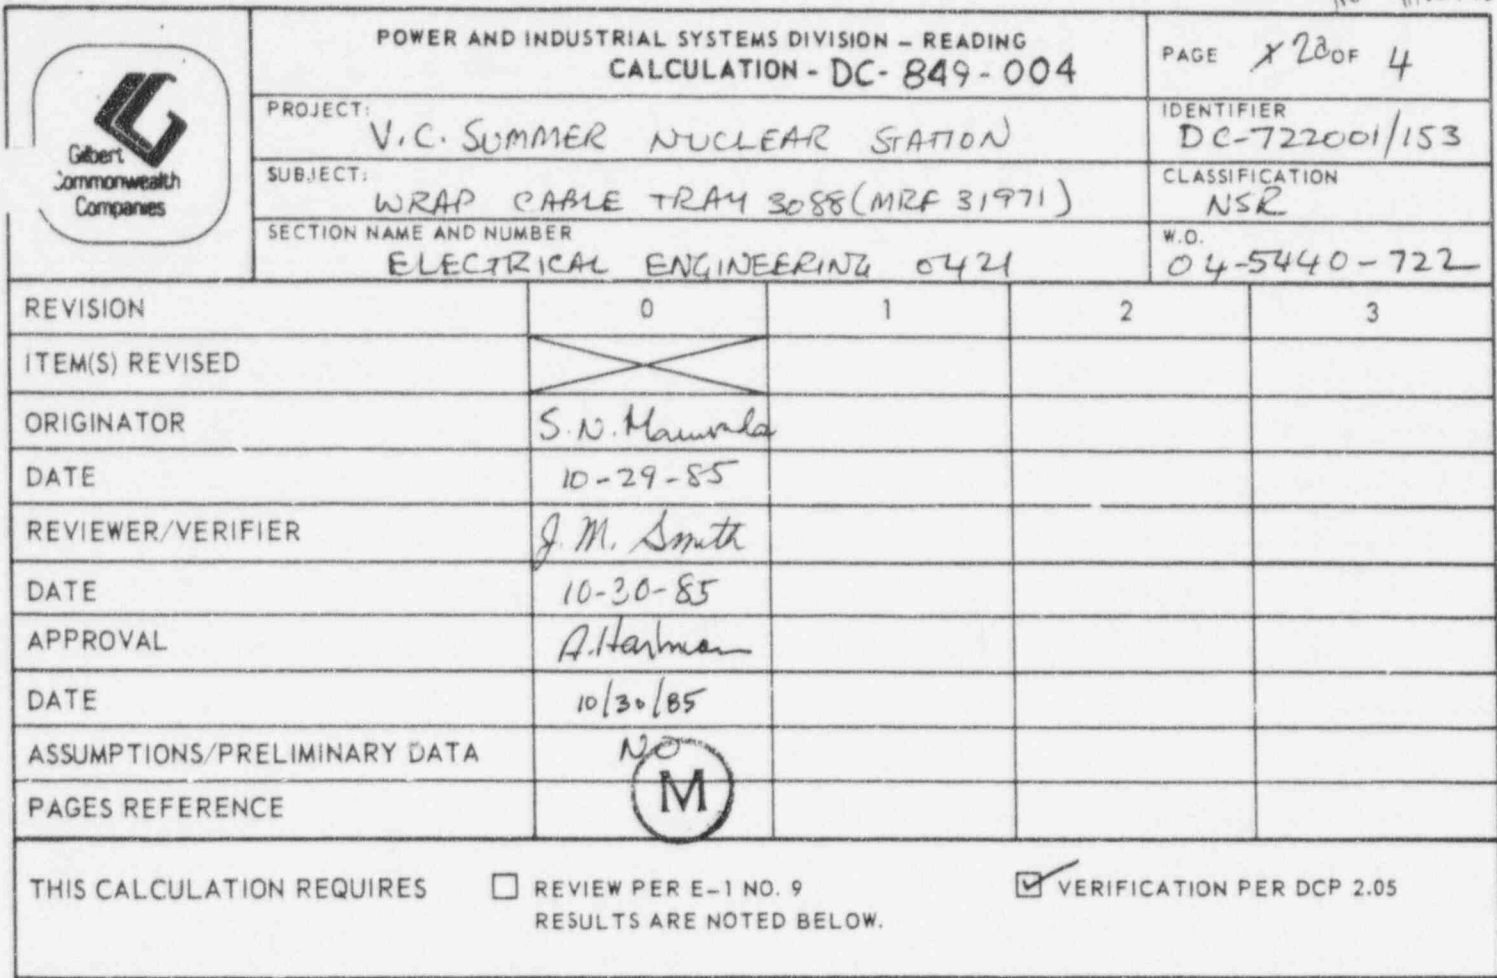 POWER AND INDUSTRIAL SYSTEMS DIVISION – READING
CALCULATION - DC-849-004
PAGE 2 OF 4
Gilbert
Commonwealth
Companies
PROJECT:
V.C. SUMMER NUCLEAR STATION
IDENTIFIER
DC-722001/153
SUBJECT:
WRAP CABLE TRAY 3088 (MRF 31971)
CLASSIFICATION
NSR
SECTION NAME AND NUMBER
ELECTRICAL ENGINEERING 0421
W.O.
04-5440-722
REVISION 0 1 2 3
ITEM(S) REVISED
ORIGINATOR S.N.
DATE 10-29-85
REVIEWER/VERIFIER J. M. Smith
DATE 10-30-85
APPROVAL A. Hartman
DATE 10/30/85
ASSUMPTIONS/PRELIMINARY DATA NO
M
PAGES REFERENCE
THIS CALCULATION REQUIRES ☐ REVIEW PER E-1 NO. 9 ☑ VERIFICATION PER DCP 2.05
RESULTS ARE NOTED BELOW.